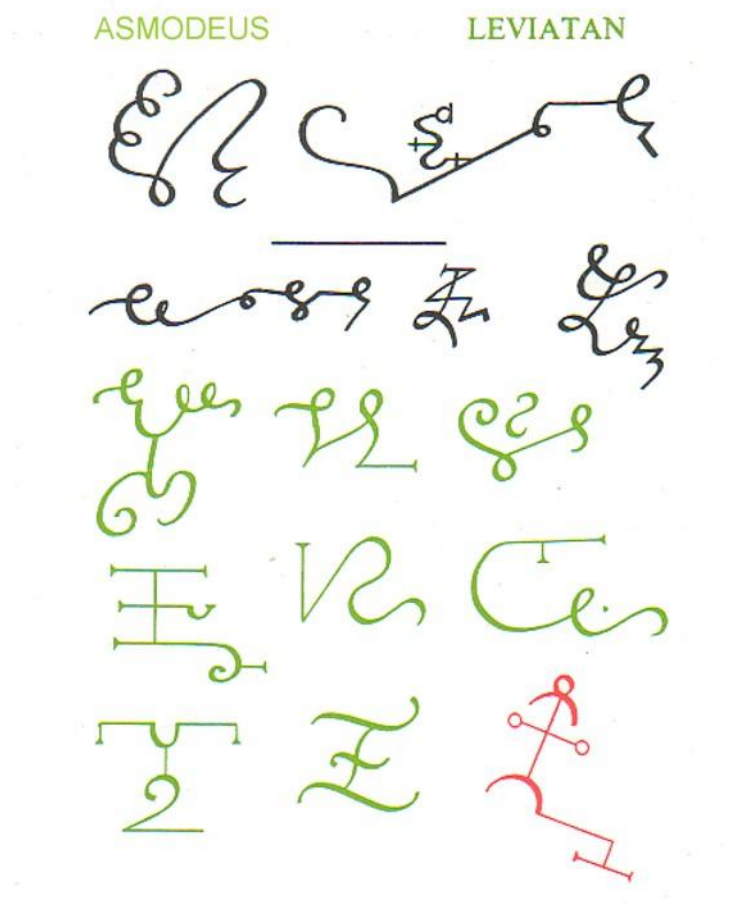 ASMODEUS LEVIATAN